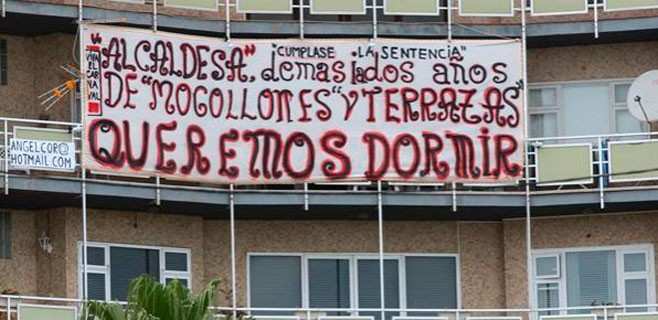 VIVA EL CARNAVAL
"ALCALDESA" "CUMPLASE LA SENTENCIA"
demasiados años
DE "MOGOLLONES" Y TERRAZAS"
QUEREMOS DORMIR
ANGELCOR@
HOTMAIL.COM